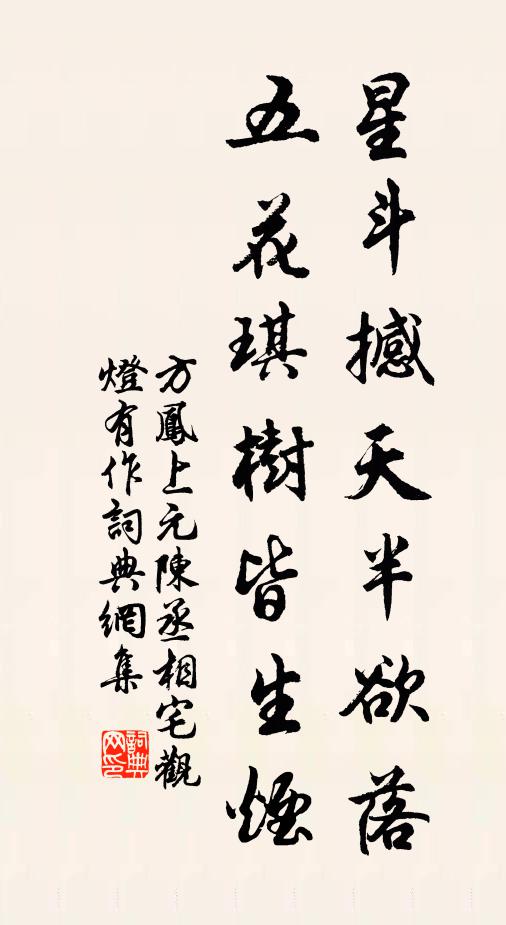 星斗撼天半欲落
五花琪樹皆生煙
方鳳上元陳丞相宅觀
燈有作詞典網集
詞典網印